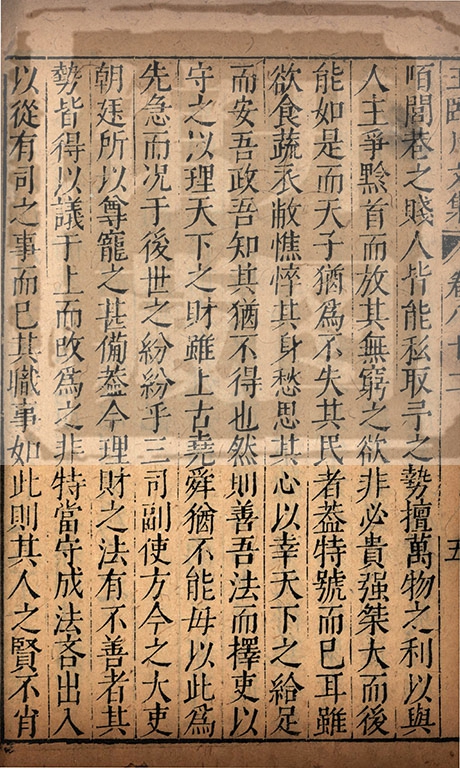 王臨川文集 卷八十二 五
陌閭巷之賤人皆能私取予之勢擅萬物之利以與
人主爭黔首而放其無窮之欲非必貴强桀大而後
能如是而天子猶為不失其民者葢特號而已耳雖
欲食蔬衣敝憔悴其身愁思其心以幸天下之給足
而安吾政吾知其猶不得也然則善吾法而擇吏以
守之以理天下之財雖上古堯舜猶不能毋以此為
先急而况于後世之紛紛乎三司副使方今之大吏
朝廷所以尊寵之甚備葢今理財之法有不善者其
勢皆得以議于上而改為之非特當守成法吝出入
以從有司之事而已其職事如此則其人之賢不肖